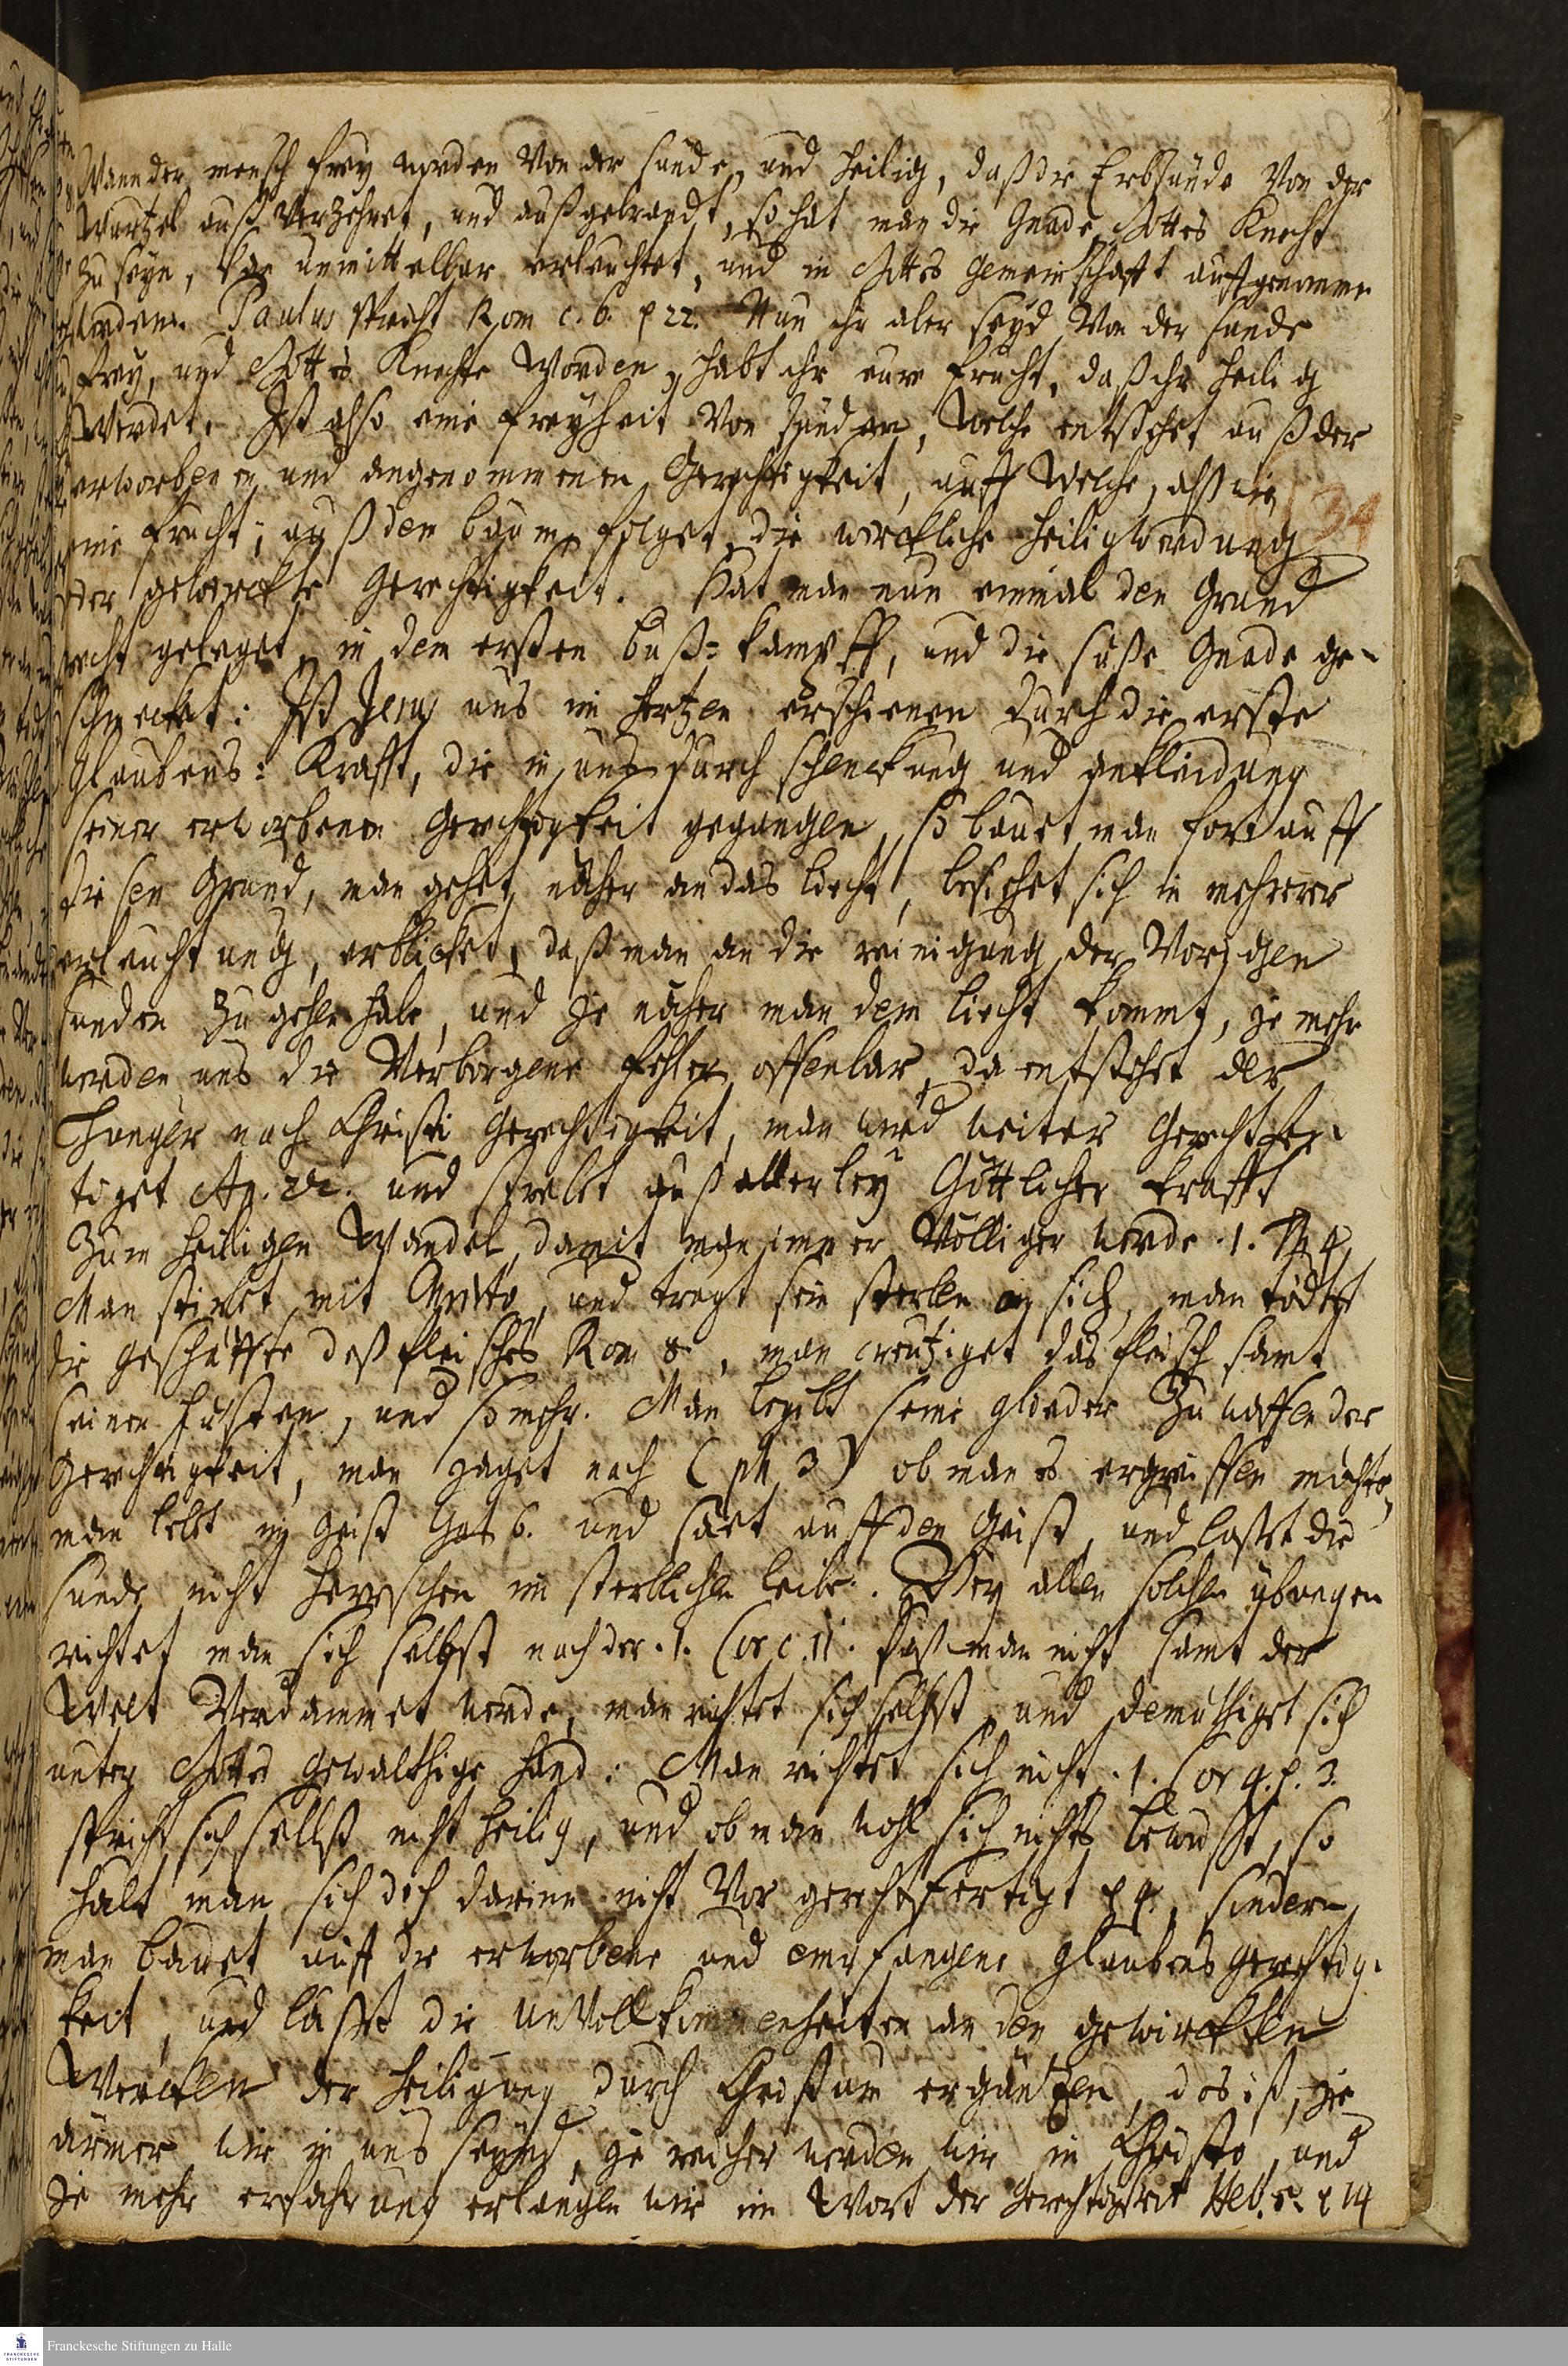 Wann der mensch frey worden Von der sünde, und heilig, daß die Erbsünde Von der
Wurtzel auß Verzehret, und außgebrandt, so hat man die Gnade, Gottes Knecht
zu seyn, unmittelbar erleuchtet, und in Gottes gemeinschafft auffgenommen
werden. Paulus spricht Rom c. 6. v 22. Nun ihr aber seyd Von der sünde
frey, und Gottes Knechte Worden, habt ihr eure frucht, daß ihr heilig
Werdet. Ist also eine freyheit Von sünden, Welche entstehet auß der
erworbenen und angenommenen Gerechtigkeit, auff Welche, alß wie
34
eine frucht, auß dem baum folget, die würckliche heiligwerdung
der gewirckte Gerechtigkeit. Hat man nun einmal den Grund
recht geleget, in dem ersten buß-kampff, und die süße Gnade ge-
schmecket: Ist Jesus uns im hertzen erschienen durch die erste
Glaubens-Krafft, die in uns durch schenckung und ankleidung
seiner erworbenen Gerechtigkeit gegangen, so bauet man fort auff
diesen Grund, man gehet näher an das liecht, besiehet sich in mehrerer
erleuchtung, erblicket, daß man an die reinigung der Vorigen
sünden zu gehen habe, und je näher man dem liecht kommt, je mehr
werden uns die Verborgene fehler offenbar, da entstehet der
Hunger nach Christi Gerechtigkeit, man wird weiter Gerechtfer-
tiget Ap. 22. und strebt auß allerley Göttlicher krafft
zum heiligen Wandel, damit man immer Völliger werde. 1. Th 4,
Man stirbet mit Christo, und tragt sein sterben an sich, man tödtet
die geschäffte deß fleisches Rom 8, man creutziget das fleisch samt
seinen lüsten, und so mehr. Man begibt seine glieder zu waffen der
Gerechtigkeit, man jaget nach (ph 3) ob man es ergreiffen möchte,
man lebt im Geist Gal 6. und säet auff den Geist, und lasset die
sünde nicht herrschen im sterblichen leibe. Bey allen solchen übungen
richtet man sich selbst nach der 1. Cor c. 11. daß man nicht samt der
Welt Verdammet werde, man richtet sich selbst, und demüthiget sich
unter Gottes gewalthige hand: Man richtet sich nicht. 1. Cor 4. v. 3.
spricht sich selbst nicht heilig, und ob man wohl sich nichts bewußt, so
halt man sich doch darinn nicht Vor gerechtfertigt v 4, sondern
man bauet auff die erworbene und empfangene glaubens gerechtig-
keit, und lässt die unvollkommenheiten an den gewirckten
Wercken der heiligung durch Christum ergäntzen, das ist, je
ärmer wir in uns seynd, je reicher werden wir in Christo, und
Je mehr erfahrung erlangen wir im Wort der Gerechtigkeit Heb. 5. v 14
Franckesche Stiftungen zu Halle